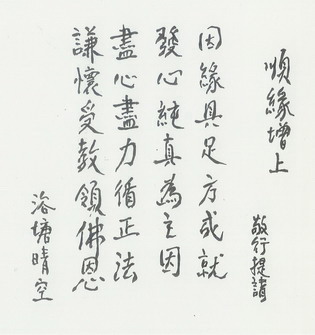 順緣增上
敬行提請
因緣具足方成就
發心純真為主因
盡心盡力循正法
謙懷受教領佛恩
塘晴空